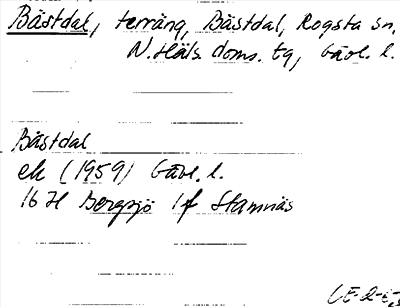 Båstdal, terräng, Båstdal, Rogsta sn,
N. Häls. doms. tg, Gävl. l.
Båstdal
ek (1959) Gävl. l.
16 H Bergsjö 1f Stamnäs